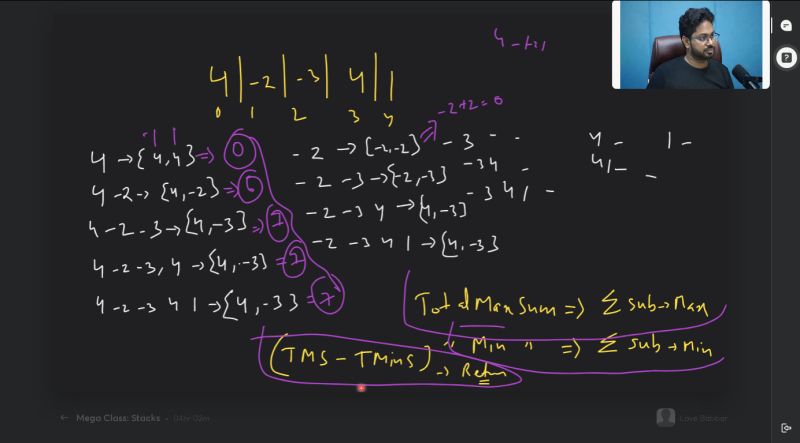 4 - +21
4 | -2 | -3 | 4 | 1
0 1 2 3 4
4 → {4,4} ⇒ 0
4 -2 → {4,-2} ⇒ 6
4 -2 -3 → {4,-3} ⇒ 7
4 -2 -3, 4 → {4,-3} = 7
4 -2 -3 4 1 → {4,-3} = 7
-2+2=0
-2 → {-2,-2} ⇒
-2 -3 → {-2,-3}
-2 -3 4 → {4,-3}
-2 -3 4 1 → {4,-3}
-3 - -
-3 4 -
-3 4 1 -
4 -
4 1 -
1 -
Total Max Sum ⇒ Σ sub → Max
" Min " ⇒ Σ sub → Min
(TMS - TMinS) → Return
← Mega Class: Stacks • 04hr 02m
Love Babbar